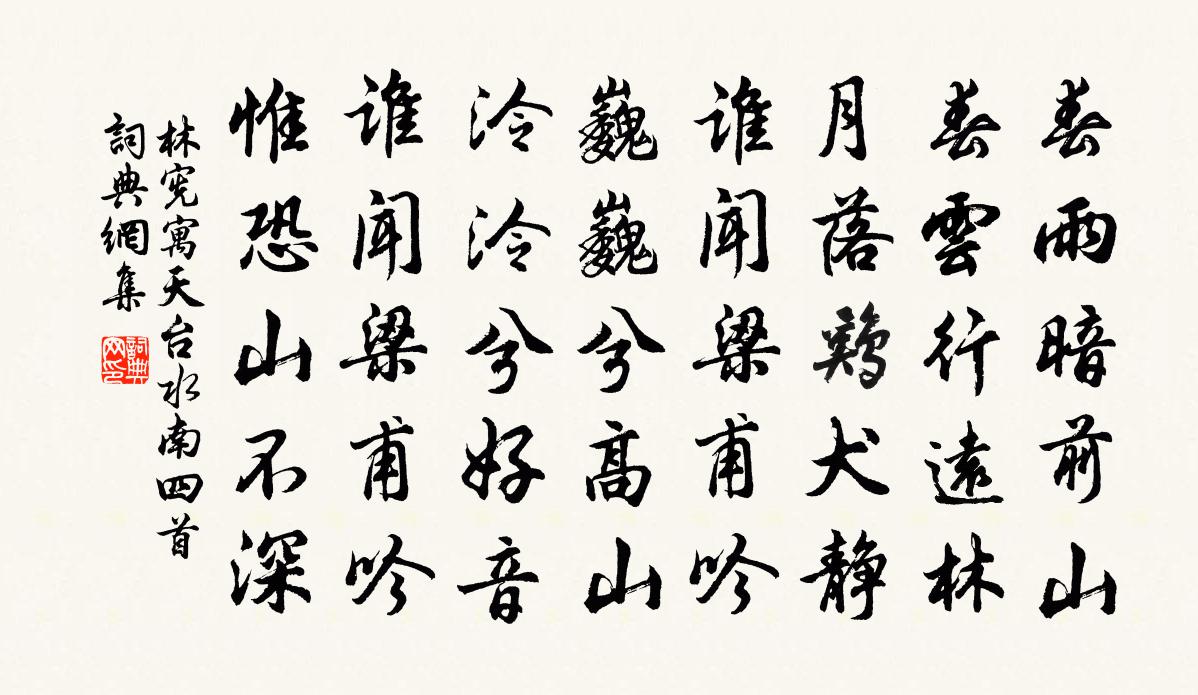 春雨暗前山
春雲行遠林
月落鷄犬静
谁闻梁甫吟
巍巍兮高山
泠泠兮好音
谁闻梁甫吟
惟恐山不深
林宪寓天台水南四首
詞典網集
詞典網印